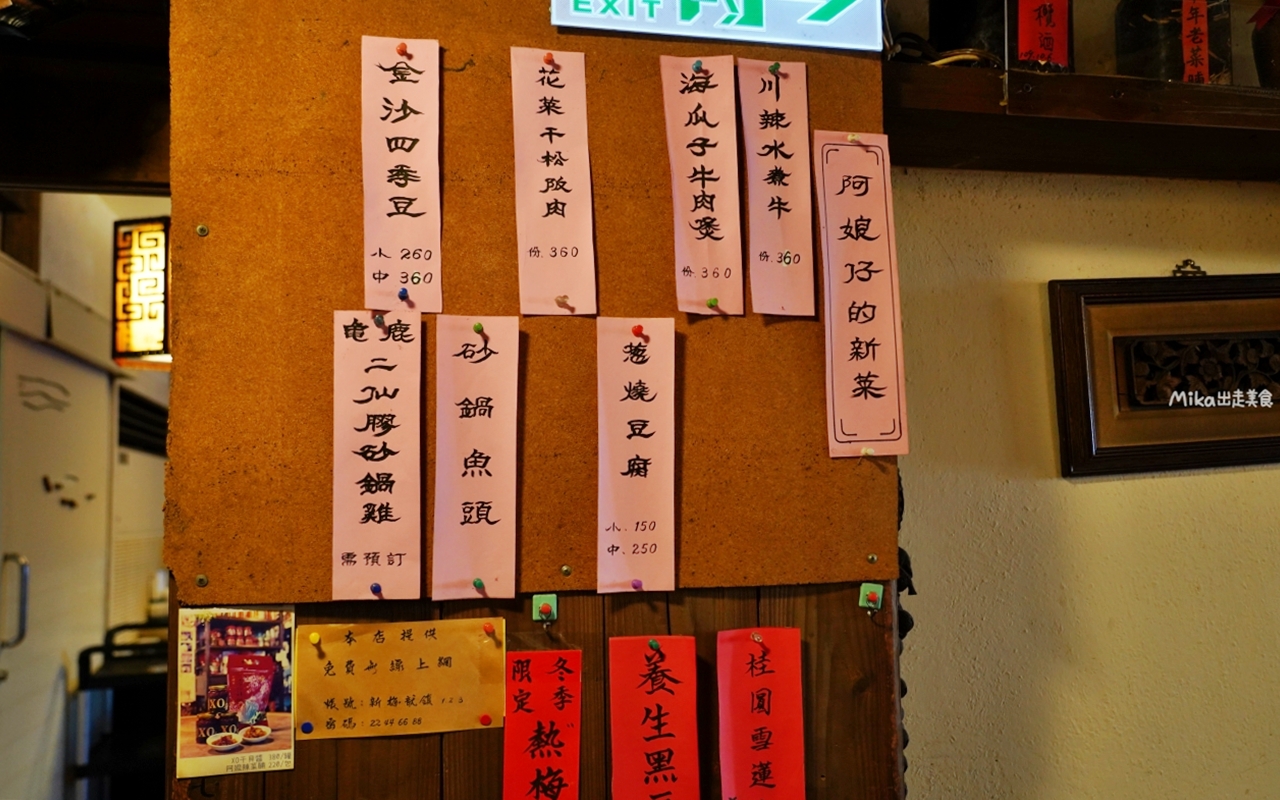 EXIT
阿娘仔的新菜
川辣水煮牛
份.360
海瓜子牛肉煲
份.360
花菜干松阪肉
份.360
金沙四季豆
小 260
中 360
葱燒豆腐
小.150
中.250
砂鍋魚頭
龜鹿二仙膠砂鍋雞
需預訂
本店提供
免費無線上網
帳號:新梅龍鎮123
密碼:22446688
冬季限定
熱梅
養生黑
桂圓雪蓮
年老菜脯
XO
XO XO
Mika出走美食